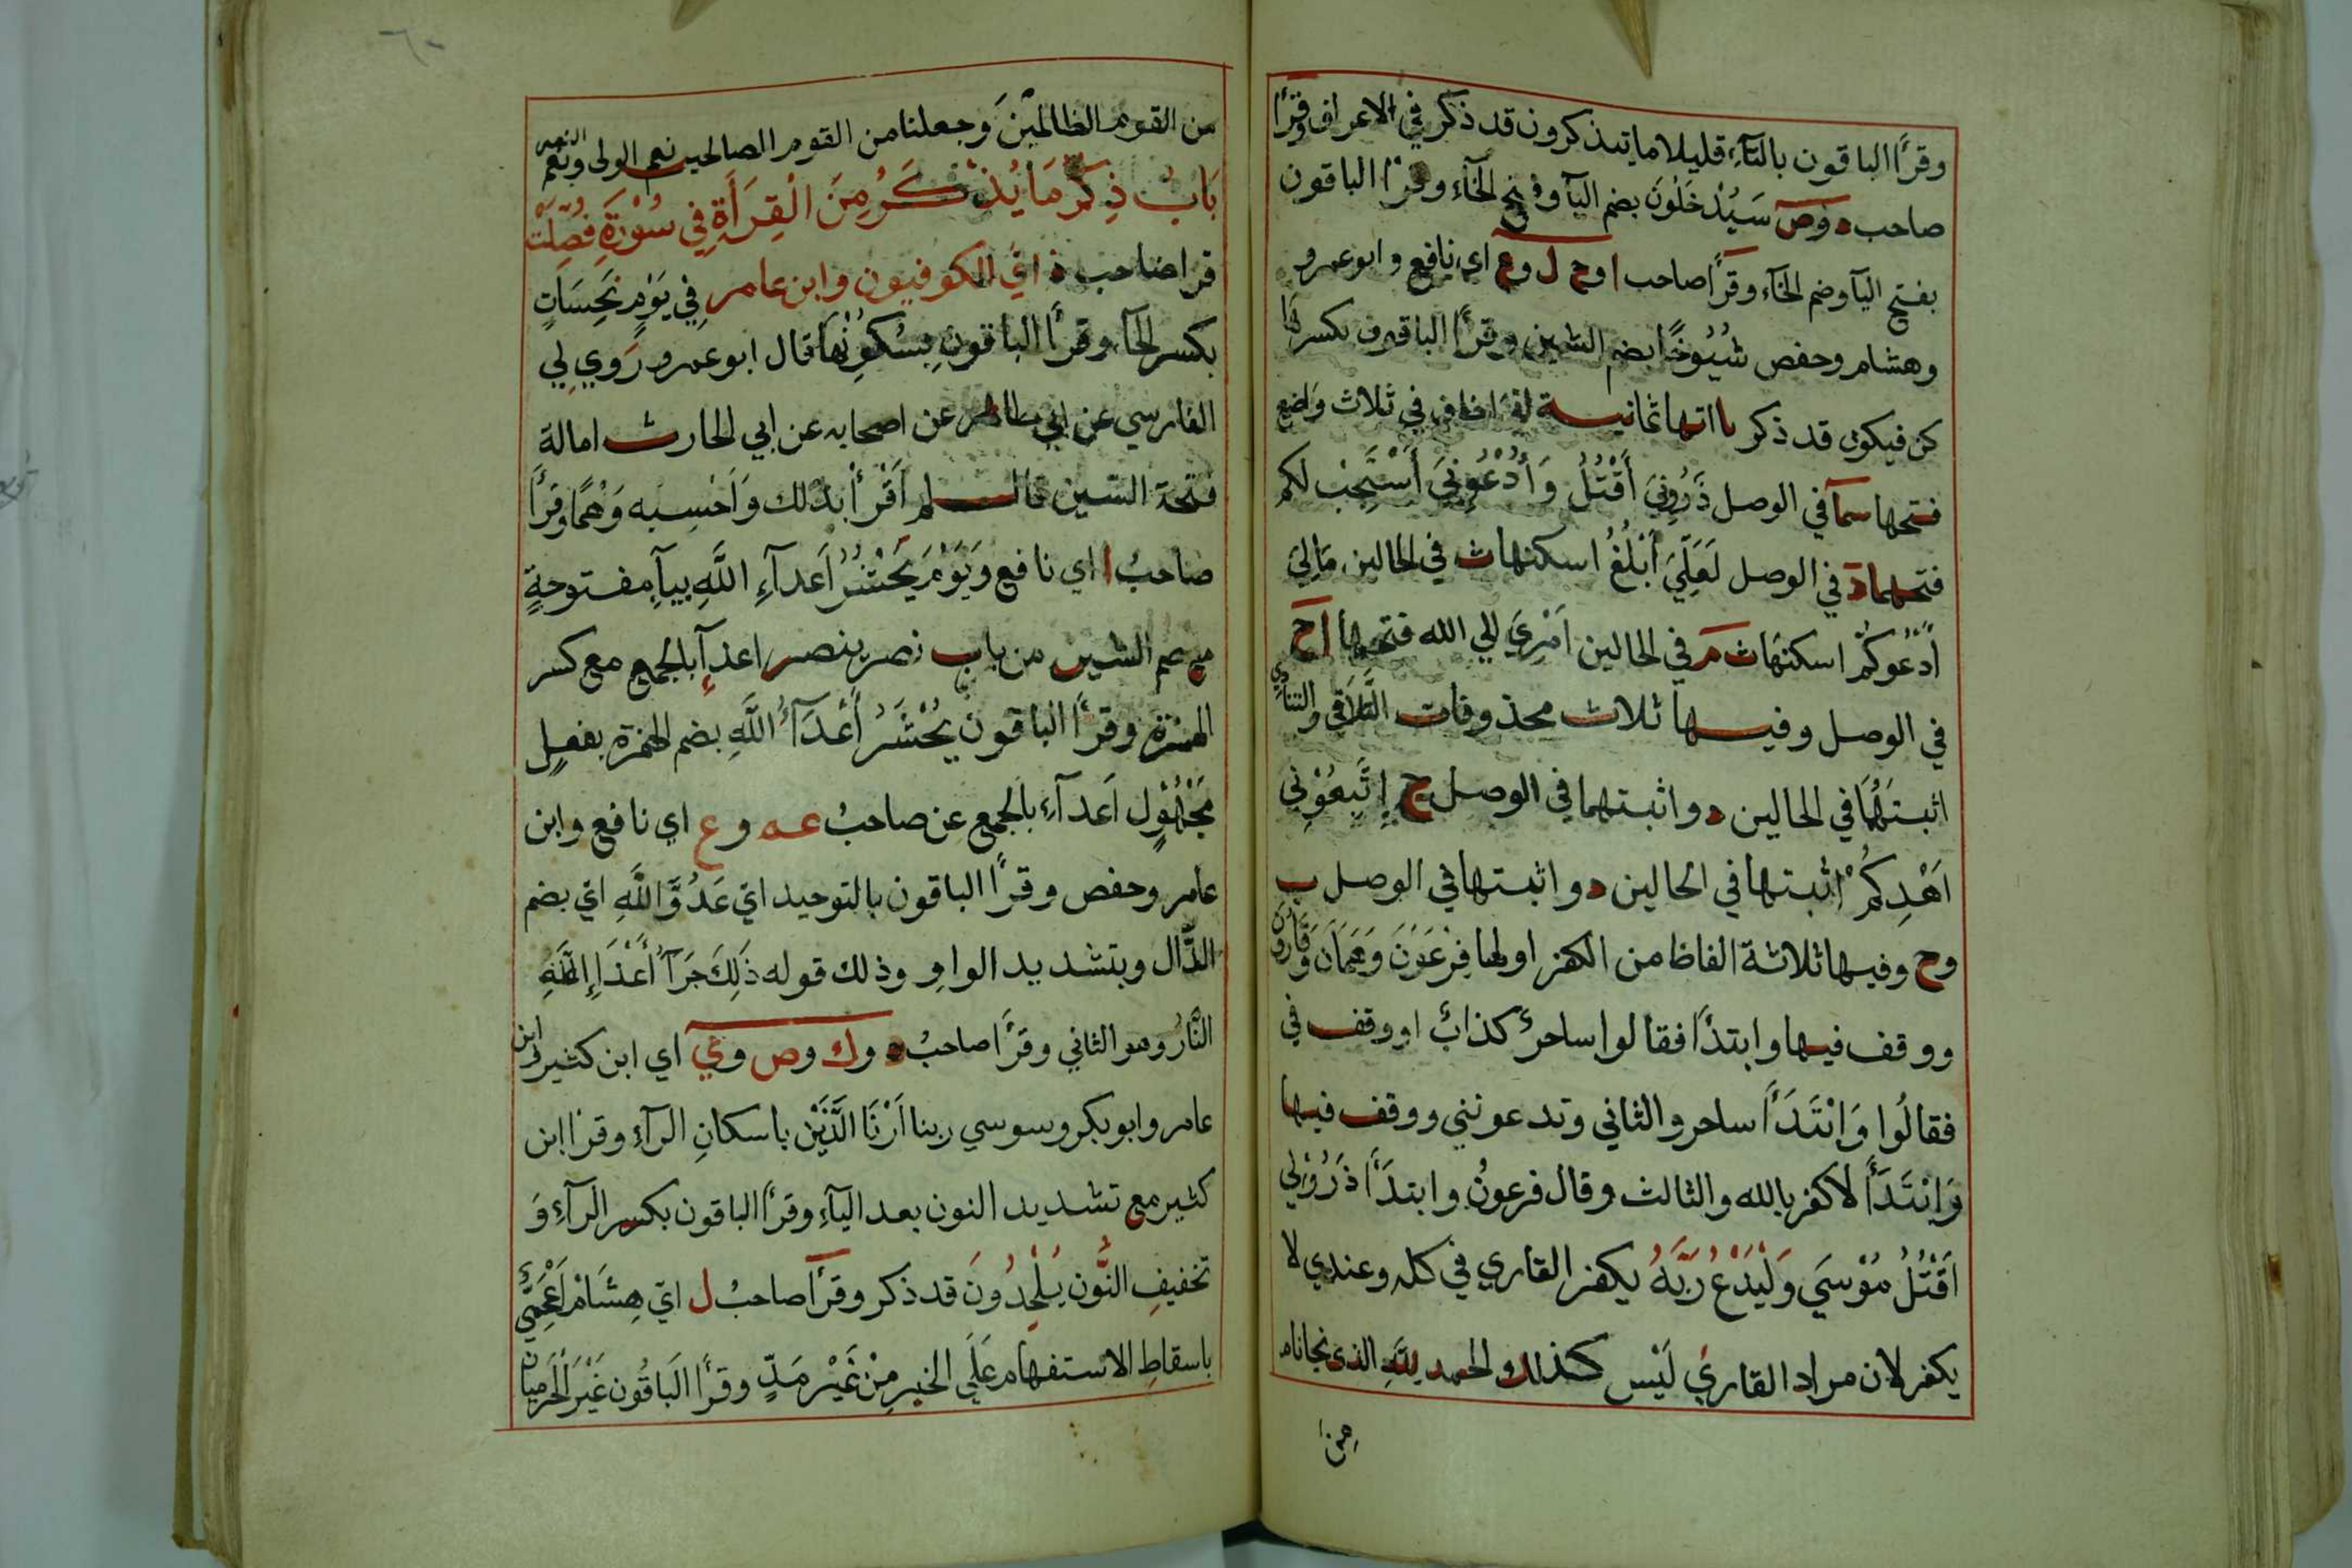 وقرأ الباقون بالتآء قليلا ما يتذكرون قد ذكر في الاعراف وقرأ
صاحب د وص سَيُدْخَلُونَ بضم اليآ وفتح الخآء وقرأ الباقون
بفتح اليآ وضم الخآء وقرأ صاحب ا وح ل وع اي نافع وابو عمرو
وهشام وحفص شُيُوخًا بضم الشين وقرأ الباقون بكسرها
كن فيكون قد ذكر ثمانية في ثلاث
فتحها سمآ في الوصل ذَرُونِيَ أَقْتُلُ وَأُدْعُونِيَ أَسْتَجِبْ لكم
فتحهما د في الوصل لَعَلِّيَ أَبْلُغُ اسكنها ث في الحالين مَالِيَ
أَدْعُوكُمْ اسكنها ث م في الحالين اَمْرِيَ الي الله فتحها ا ح
في الوصل وفيها ثلاث محذوفات التَّلَاقِ والتنادي
اثبتهُمَا في الحالين د واثبتهما في الوصل ج اِتَّبِعُوْنِي
اَهْدِكُمْ اثبتها في الحالين د واثبتها في الوصل ب
وح وفيها ثلاثة الفاظ من الكفر اولها فِرْعَوْنَ وَهَامَانَ وَقَارُونَ
ووقف فيها وابتدأ فقالوا ساحرٌ كذابٌ اووقف في
فقالُوا وَابْتَدَأَ ساحر والثاني وتدعونني ووقف فيها
وَابْتَدَأَ لاكفر بالله والثالث وقال فرعونُ وابتدأ ذَرُوْنِي
اَقْتُلُ مُوْسَي وَلْيَدْعُ رَبَّهُ يكفر القاري في كله وعندي لا
يكفر لان مراد القاري لَيْس كذلك والحمد للهِ الذي نجانا
من
من القوم الظالمينَ وجعلنا من القوم الصالحين نعم المولى ونعم النصير
بَابُ ذِكْرِ مَا يُذْكَرُ مِنَ الْقِرَأَةِ فِي سُوْرَةِ فُصِّلَتْ
قرا صاحب ذ اي الكوفيون وابن عامر فِي يَوْمٍ نَحِسَاتٍ
بكسر الحآء وقرأ الباقونِ بِسُكُوْنِهَا قال ابو عمرو رَوي لِي
الفارسي عن ابي طاهر عن اصحابه عن ابي الحارث امالة
فتحة السّين قال لم اَقْرَأْ بذلك وَاَحْسِبه وَهْمًا وقرأ
صاحبُ ا اي نافع وَيَوْمَ يَحْشُرُ اَعدآءِ اللَّهِ بيآءٍ مفتوحةٍ
مع ضم الشين من باب نصر ينصر اعدآءِ بالجمع مع كسر
الهمزة وقرأ الباقون يُحْشَرُ أَعْدَآءُ اللَّهِ بضم الهمزة بفعلٍ
مَجْهُوْلٍ اَعدآءِ بالجمع عن صاحبُ عه وع اي نافع وابن
عامر وحفص وقرأ الباقون بالتوحيد ايْ عَدُوُّ اللَّهِ ايْ بضم
الدّال وبتشديد الواوِ وذلك قوله ذَلِكَ جَزَآءُ أَعْدَآءِ اللَّهِ
النَّارُ وهو الثاني وقرأ صاحبُ د وك وص وي اي ابن كثير وابن
عامر وابو بكر وسوسي ربنا اَرْنَا الَّذَيْن باسكانِ الرآءِ وقرأ ابن
كثير مع تشديد النون بعد اليآءِ وقرأ الباقون بكسر الرآءِ وَ
تخفيفِ النُّون يُلْحِدُونَ قد ذكر وقرأ صاحبُ ل ايْ هِشَامْ اَعْجَمِيٌّ
باسقاطِ الاستفهام عَلَي الخبر مِنْ غَيْرِ مَدٍّ وقرأ الَباقُون غَيْرَ الحَرَمِيان